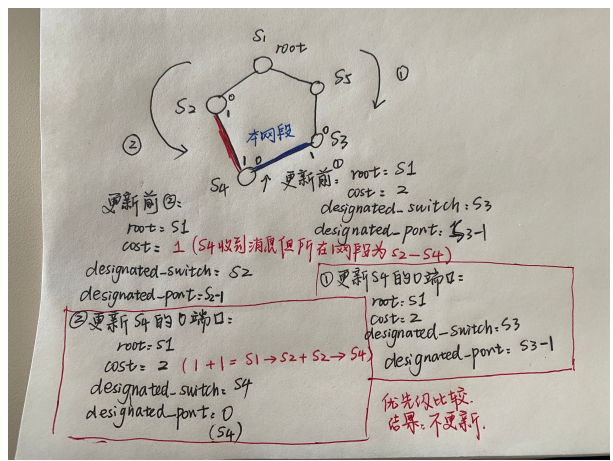 S1
root
S5
①
S2
0
1
本网段
0
S3
1
②
1
0
S4
↑
更新前①:
root: S1
cost: 2
designated_switch: S3
designated_port: S3-1
更新前②:
root: S1
cost: 1 (S4收到消息但所在网段为S2-S4)
designated_switch: S2
designated_port: S2-1
①更新S4的0端口:
root: S1
cost: 2
designated_switch: S3
designated_port: S3-1
②更新S4的0端口:
root: S1
cost: 2 (1+1=S1→S2+S2→S4)
designated_switch: S4
designated_port: 0
(S4)
优先级比较.
结果: 不更新.